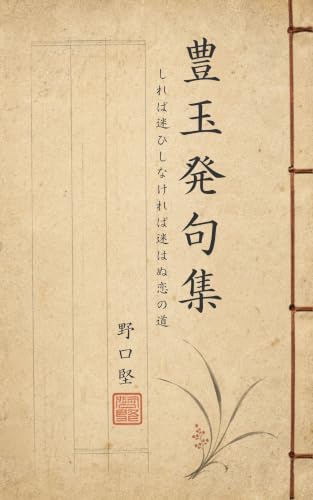 豊玉発句集
しれば迷ひしなければ迷はぬ恋の道
野口堅